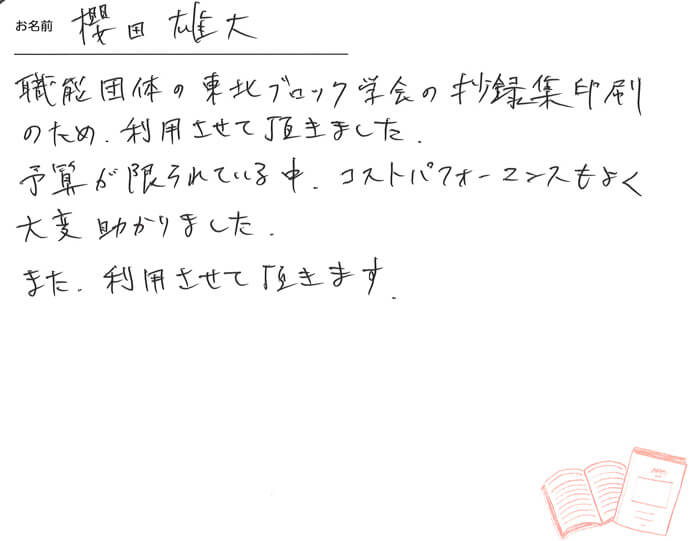 お名前 櫻田 雄大
職能団体の東北ブロック学会の抄録集印刷
のため、利用させて頂きました。
予算が限られている中、コストパフォーマンスもよく
大変助かりました。
また、利用させて頂きます。